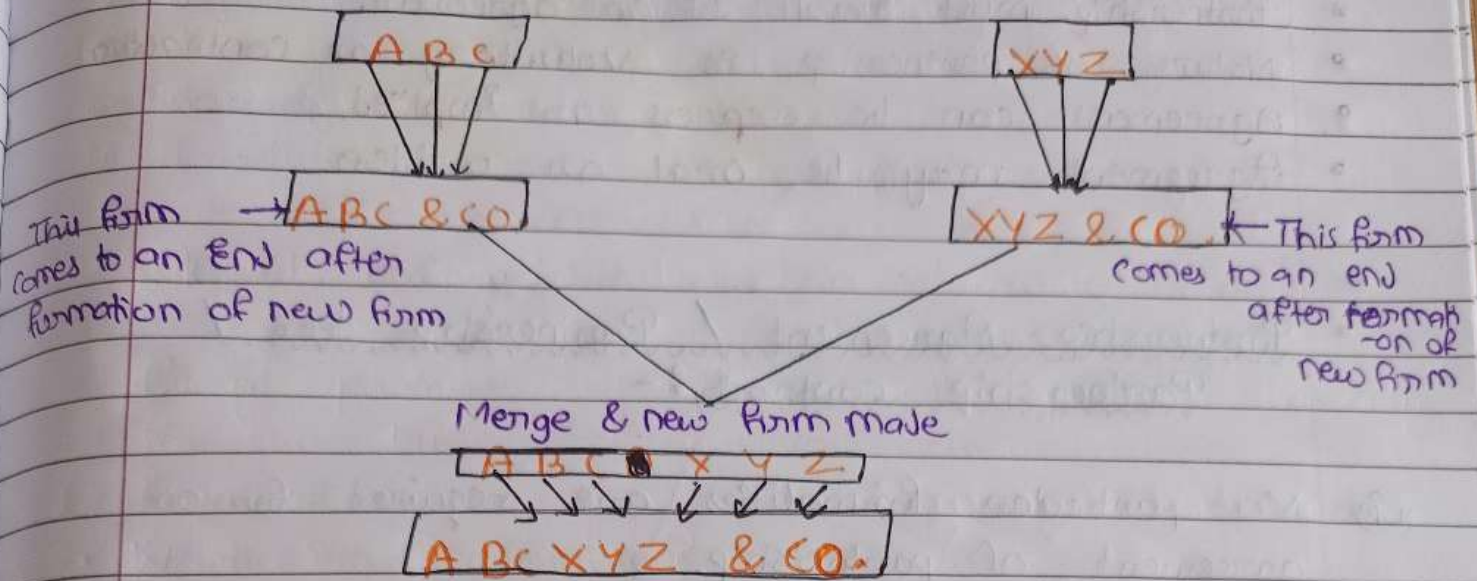 A B C
XYZ
ABC & CO
XYZ & CO.
This firm
comes to an End after
formation of new firm
This firm
comes to an end
after format
-on of
new firm
Merge & new firm made
A B C X Y Z
A BC X Y Z & CO.